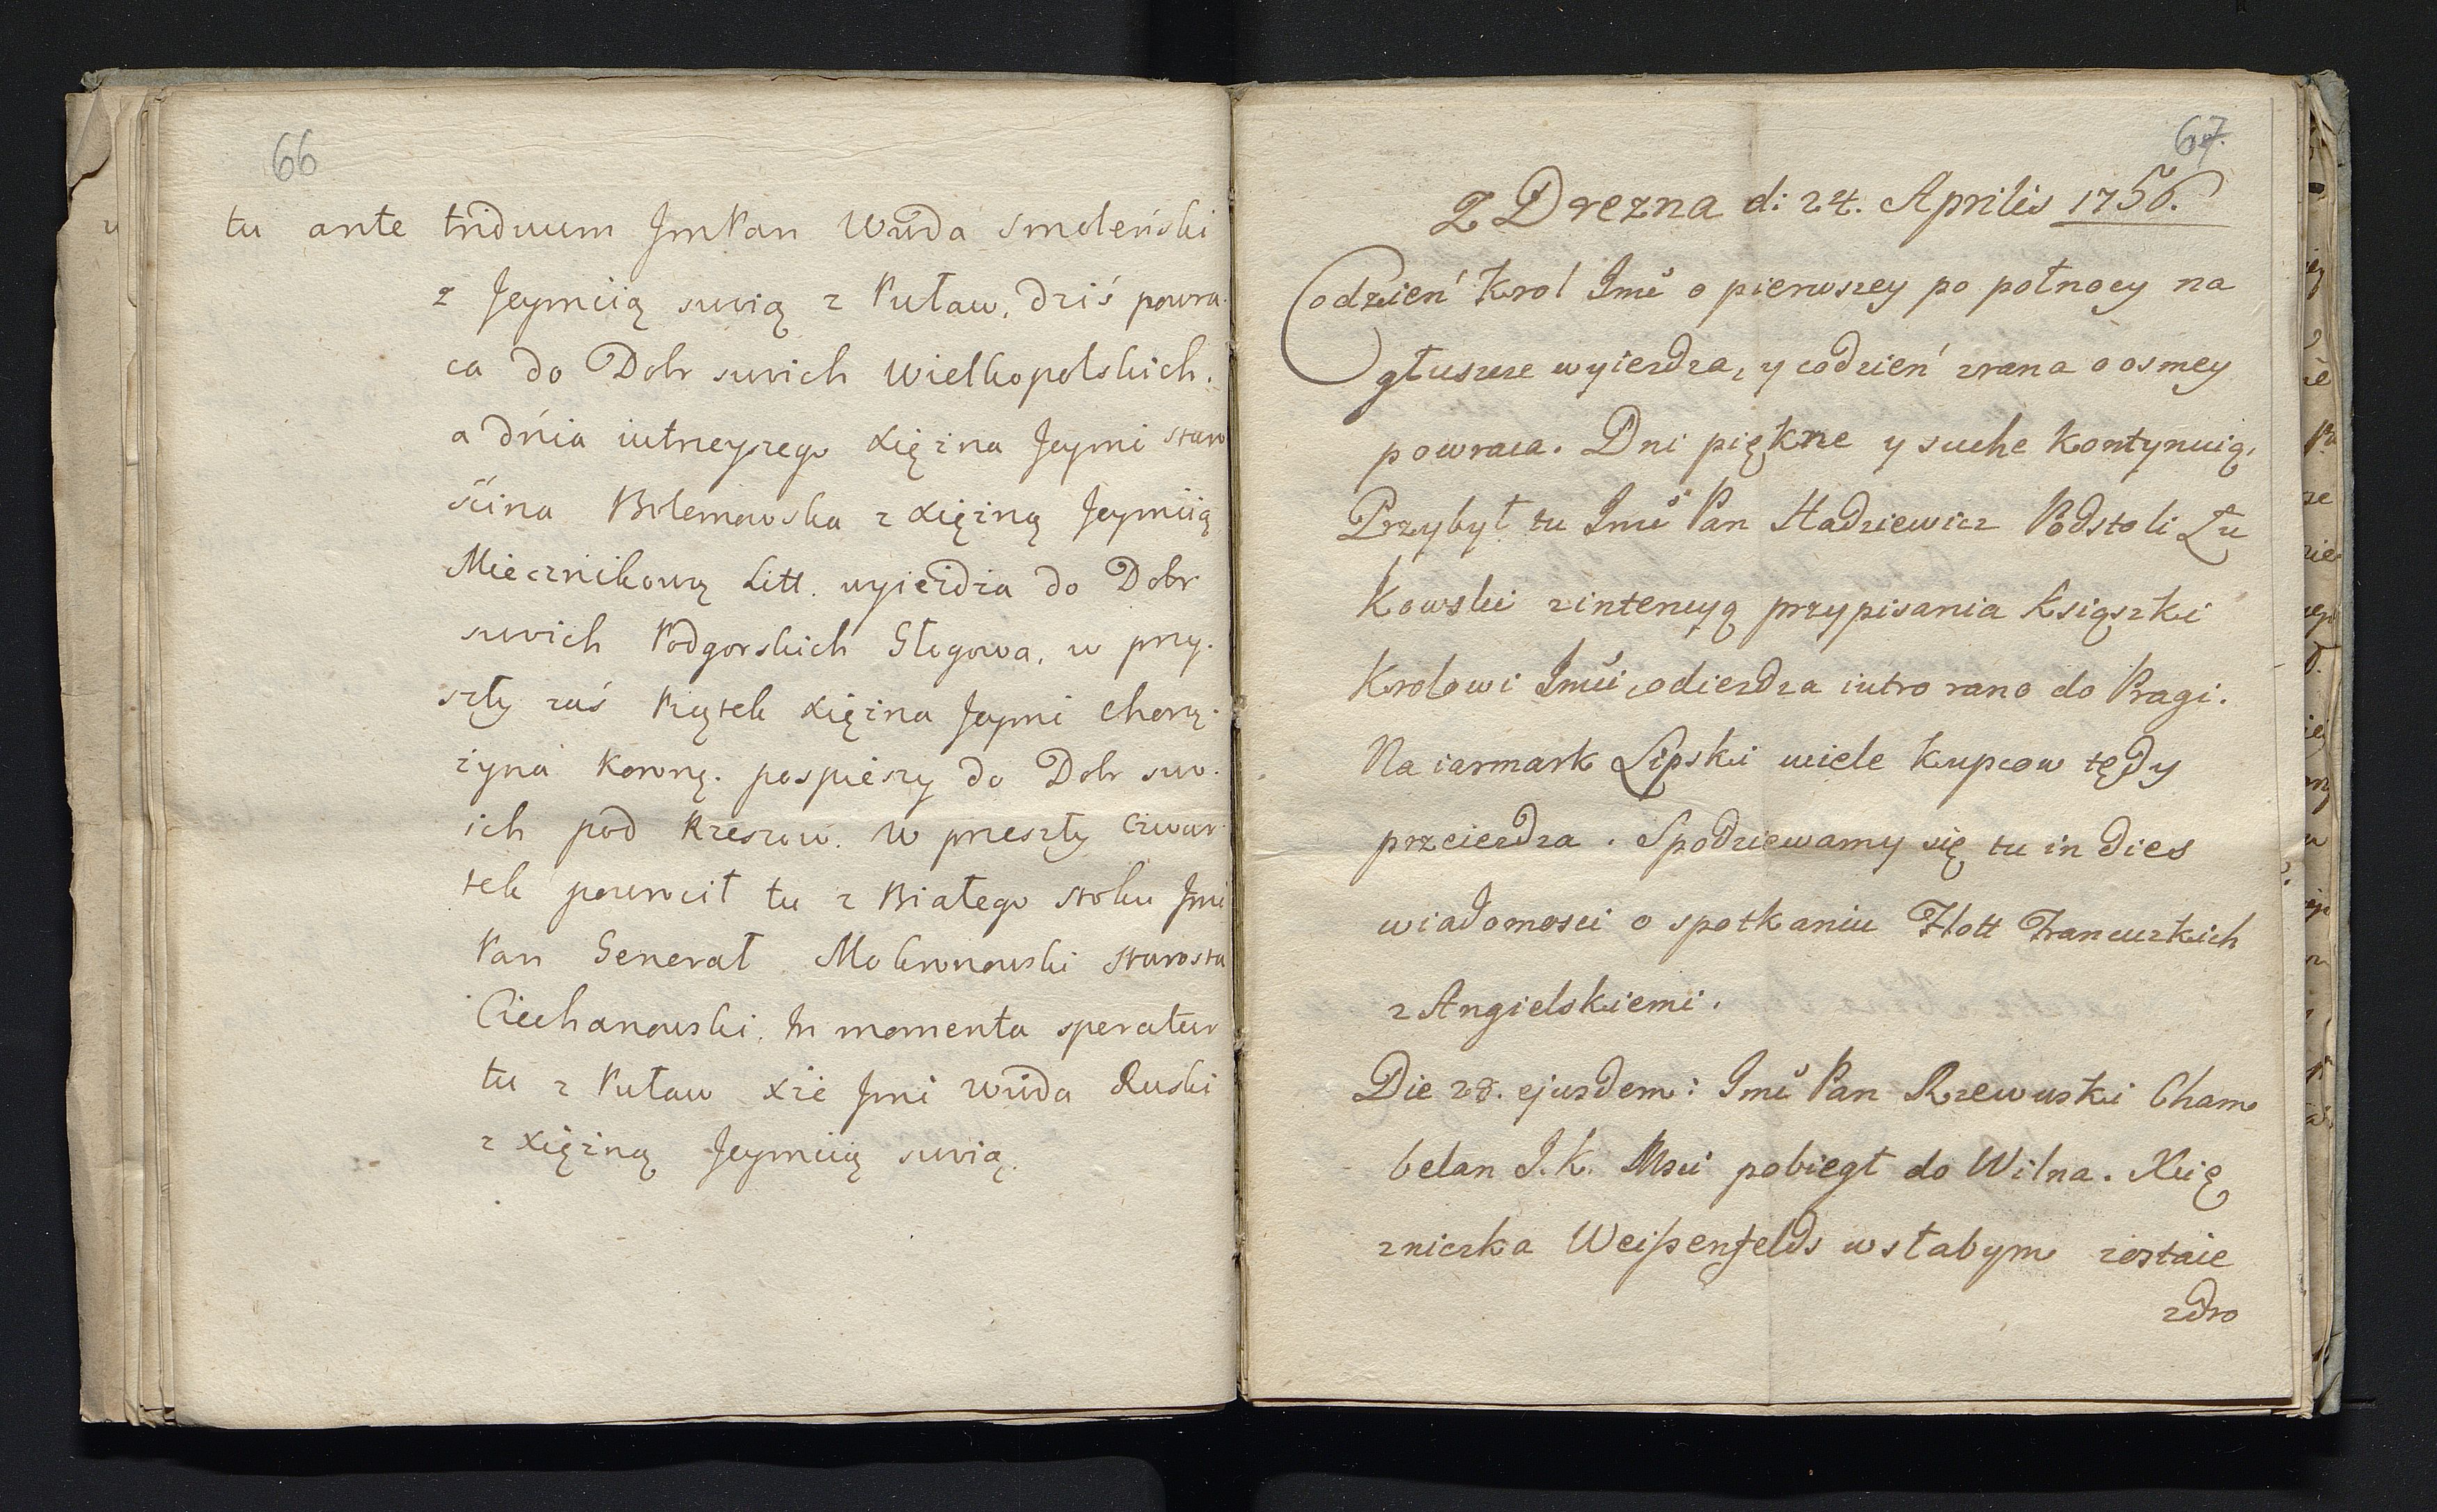 66
tu ante triduum JmPan Wwda Smoleński
z Jeymcią swią z Puław, dziś powra-
ca do Dobr swich Wielkopolskich.
a dnia iutrzeyszego Xiężna Jeymć staro
ścina Bolemowska z Xiężną Jeymcią
Miecznikową Litt. wyieżdża do Dobr
swich Podgorskich Głogowa, w przy-
szły zaś Piątek Xiężna Jeymć Chorą-
żyna Koronn. pospieszy do Dobr swo-
ich pod Rzeszow. W przeszły Czwar-
tek powrocił tu z Białego stoku Jmć
Pan Generał Mokronowski Starosta
Ciechanowski. In momenta speratur
tu z Puław Xże Jmć Wwda Ruski
z Xiężną Jeymcią swią.
67.
Z Drezna d: 24. Aprilis 1756.
Codzień Krol Imć o pierwszey po połnocy na
głuszce wyiezdza, y codzień zrana o osmey
powraca. Dni piękne y suche kontynuią.
Przybył tu Imć Pan Hadziewicz Podstoli Łu
kowski z intencyą przypisania ksiąszki
Krolowi Imci, odiezdza iutro rano do Pragi.
Na iarmark Lipski wiele kupcow tędy
przeiezdza. Spodziewamy się tu in dies
wiadomosci o spotkaniu Flott Francuzkich
z Angielskiemi.
Die 28. ejusdem: Imć Pan Rzewuski Cham
belan J. K. Msci pobiegł do Wilna. Xię
zniczka Weißenfelds w słabym zostaie
zdro